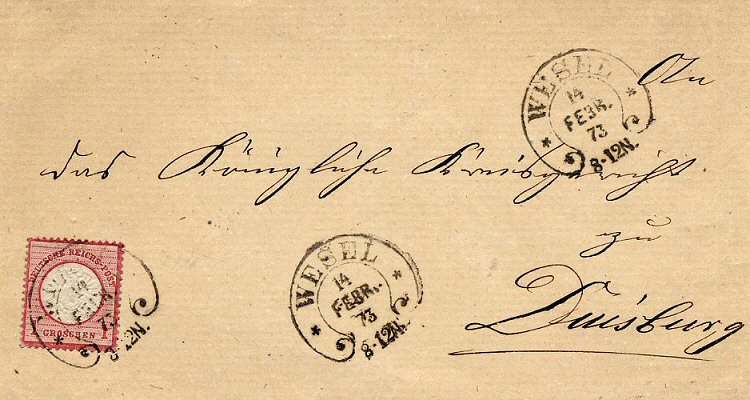 An
das Königliche Kreisgericht
zu
Duisburg
WESEL
14
FEBR.
73
8-12N.
WESEL
14
FEBR.
73
8-12N.
DEUTSCHE REICHS-POST
GROSCHEN 1
14
FEBR.
73
8-12N.